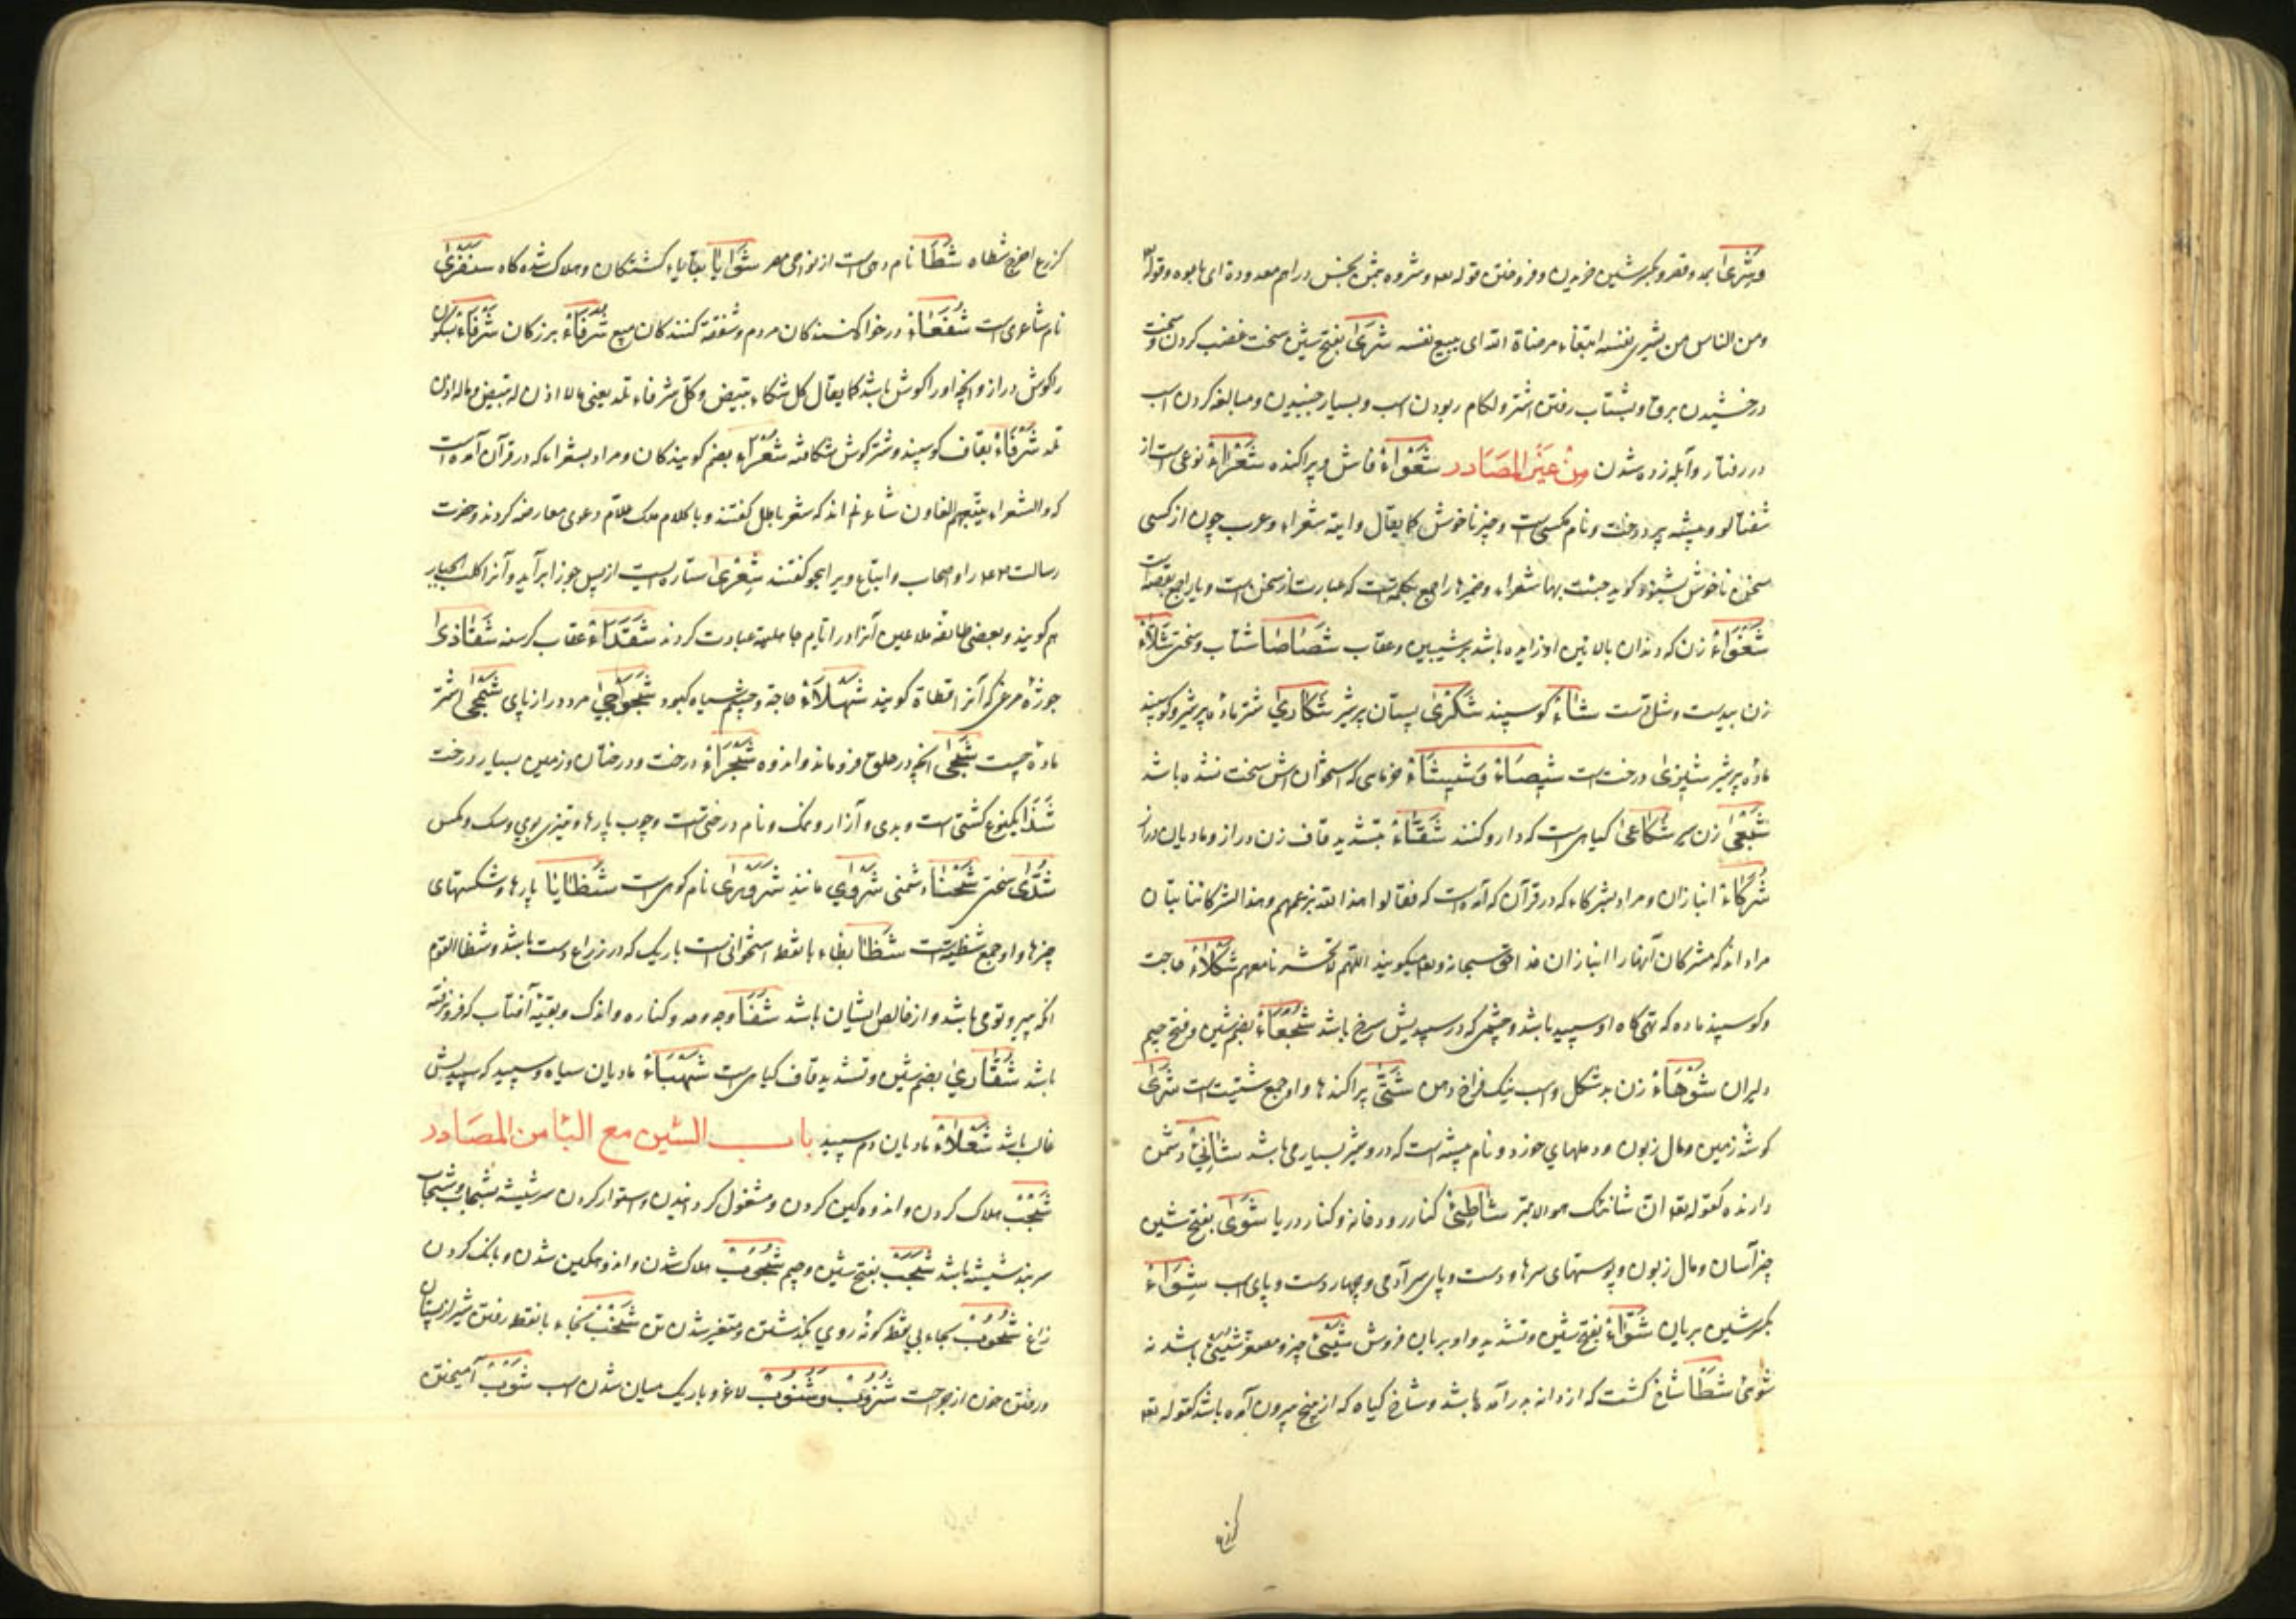 وشرى بمد و قصر و بکسر شین خریدن و فروختن قوله تعه و شروه بثمن بخس دراهم معدودة ای باعوه و قوله
ومن الناس من یشری نفسه ابتغاء مرضاة الله ای یبیع نفسه شَرَى بفتح شین سخت غضب کردن و سخت
درخشیدن برق و بشتاب رفتن اشتر و لکام ربودن اسب و بسیار جنبیدن و مبالغه کردن اسب
در رفتار و آبله زده شدن من غیر المصادر شَعْوَاءُ فاش و پراکنده شَعْرَاءُ نوعی است از
شفتالو و بیشه پر درخت و نام مکسی است و چیز ناخوش کما یقال داهیة شعراء و عرب چون از کسی
سخن ناخوش بشنود کوید جئت بها شعراء و ضمیر ها راجع بکلمه است که عبارت از سخن است و یا راجع بقصه است
شَغْوَاءُ زن که دندان بالائین او زائده باشد بر شیبین و عقاب شَصَاصَا شتاب و سختی شَلَّاءُ
زن بیدست و شل دست شَاءُ کوسپند شَكْرَى پستان پر شیر شَكَارِي شتر ماده پر شیر و کوسپند
ماده پر شیر شیزی درخت است شِيصَاءُ وَشِيشَاءُ خرمایی که استخوانش سخت نشده باشد
شَبْعَى زن سیر شُكَاعَى کیاهی است که دارو کنند شَقَّاءُ بتشدید قاف زن دراز و مادیان دراز
شُرَكَاءُ انبازان و مراد بشرکاء که در قرآن که آمده است که فقالوا هذا لله بزعمهم و هذا لشرکائنا بتان
مراد اند که مشرکان آنها را انبازان خدا حق سبحانه وتعه میکویند اللهم لا تحشرنا معهم شَكْلَاءُ حاجت
و کوسپند ماده که تهی کاه او سپید باشد و چشمی که در سپیدیش سرخ باشد شُجَعَاءُ بضم شین و فتح جیم
دلیران شَوْهَاءُ زن بد شکل و اسب نیک فراخ دهن شَتَّى پراکندها و او جمع شتیت است شَرَى
کوشهٔ زمین و مال زبون و دملهای خورد و نام بیشه است که درو شیر بسیار می باشد شَانِئُ دشمن
دارنده کقوله تعه ان شانئک هو الابتر شَاطِئُ کنار رودخانه و کنار دریا شَوَى بفتح شین
چیز آسان و مال زبون و پوستهای سرها و دست و پای سر آدمی و چهار دست و پای اسب شِوَاءُ
بکسر شین بریان شَوَّاءُ بفتح شین و تشدید واو بریان فروش شَيْئُ چیز و مصغر شُيَيْئُ باشد نه
شوئ شَطَأ شاخ کشت که از دانه بر آمده باشد و شاخ کیاه که از بیخ بیرون آمده باشد کقوله تعه
کزرع
کزرع اخرج شطاه شَطَا نام دهی است از نواحی مصر شَوَايَا بقایاء کشتکان و هلاک شده کاه شَنْفَرَى
نام شاعری است شُفَعَاءُ درخواه کنندکان مردم و شفقه کنندکان مبیع شُرَفَاءُ بزرکان شَرْفَاءُ بسکون
را کوش دراز و آنچه او را کوش باشد کما یقال کل شکاء تبیض و کل شرفاء تلد یعنی مالا اذن له تبیض و ماله اذن
تلد شَرْقَاءُ بقاف کوسپند و شتر کوش شکافته شُعَرَاءُ بضم کویندکان و مراد بشعراء که در قرآن آمده است
که والشعراء یتبعهم الغاون شاعرانند که شعر باطل کفتند و با کلام ملک علام دعوی معارضه کردند و حضرت
رسالت صلعم را و اصحاب و اتباع ویرا هجو کفتند شِعْرَى ستاره ایست از پس جوزا برآید و آنرا کلب الجبار
هم کویند و بعضی طائفه ملاعین آنرا در ایام جاهلیة عبادت کردند شَقْذَاءُ عقاب کرسنه شَقَاذَى
جوزهٔ مرغی که آنرا قطاة کویند شَهْلَاءُ حاجة و چشم سیاه کبود شَجَوْجَى مرد دراز پای شَجْمَى اشتر
ماده چست شَجَى آنچه در حلق فروماند و اندوه شَجْرَاءُ درخت و درختان و زمین بسیار درخت
شَذَا یکنوع کشتی است و بدی و آزار و نمک و نام درختی است و چوب پارها و تیزی بوی و سک و مکس
شُدَّى سختی شَحْنَاء دشمنی شَرْوَي مانند شَرَوْرَى نام کوهی است شَظَايَا پارها و شکستهای
چیزها و او جمع شظیة است شَظَا بظاء با نقطه استخوانی است باریک که در ذراع دست باشد و شظا القوم
آنکه پیرو قومی باشد و از خالص ایشان باشد شَفَا وجه و حد و کناره و اندک و بقیهٔ آفتاب که فرو نرفته
باشد شُقَّارِي بضم شین و تشدید قاف کیاهی است شَهْبَاءُ مادیان سیاه و سپید که سپیدیش
غالب باشد شَعْلَاءُ مادیان دم سپید باب الشین مع البا من المصادر
شَجْبُ هلاک کردن و اندوهکین کردن و مشغول کردانیدن و استوار کردن سر شیشه بشجاب و شجاب
سر بند شیشه باشد شَجَبُ بفتح شین و جیم شُجُوبُ هلاک شدن و اندوهکین شدن و بانک کردن
زاغ شُحُوبُ بحاء بی نقطه کونهٔ روی بکذشتن و متغیر شدن تن شَخْبُ بخاء با نقطه رفتن شیر از پستان
و رفتن خون از جراحت شُزُوبُ وشُسُوبُ لاغر و باریک میان شدن اسب شَوْبُ آمیختن